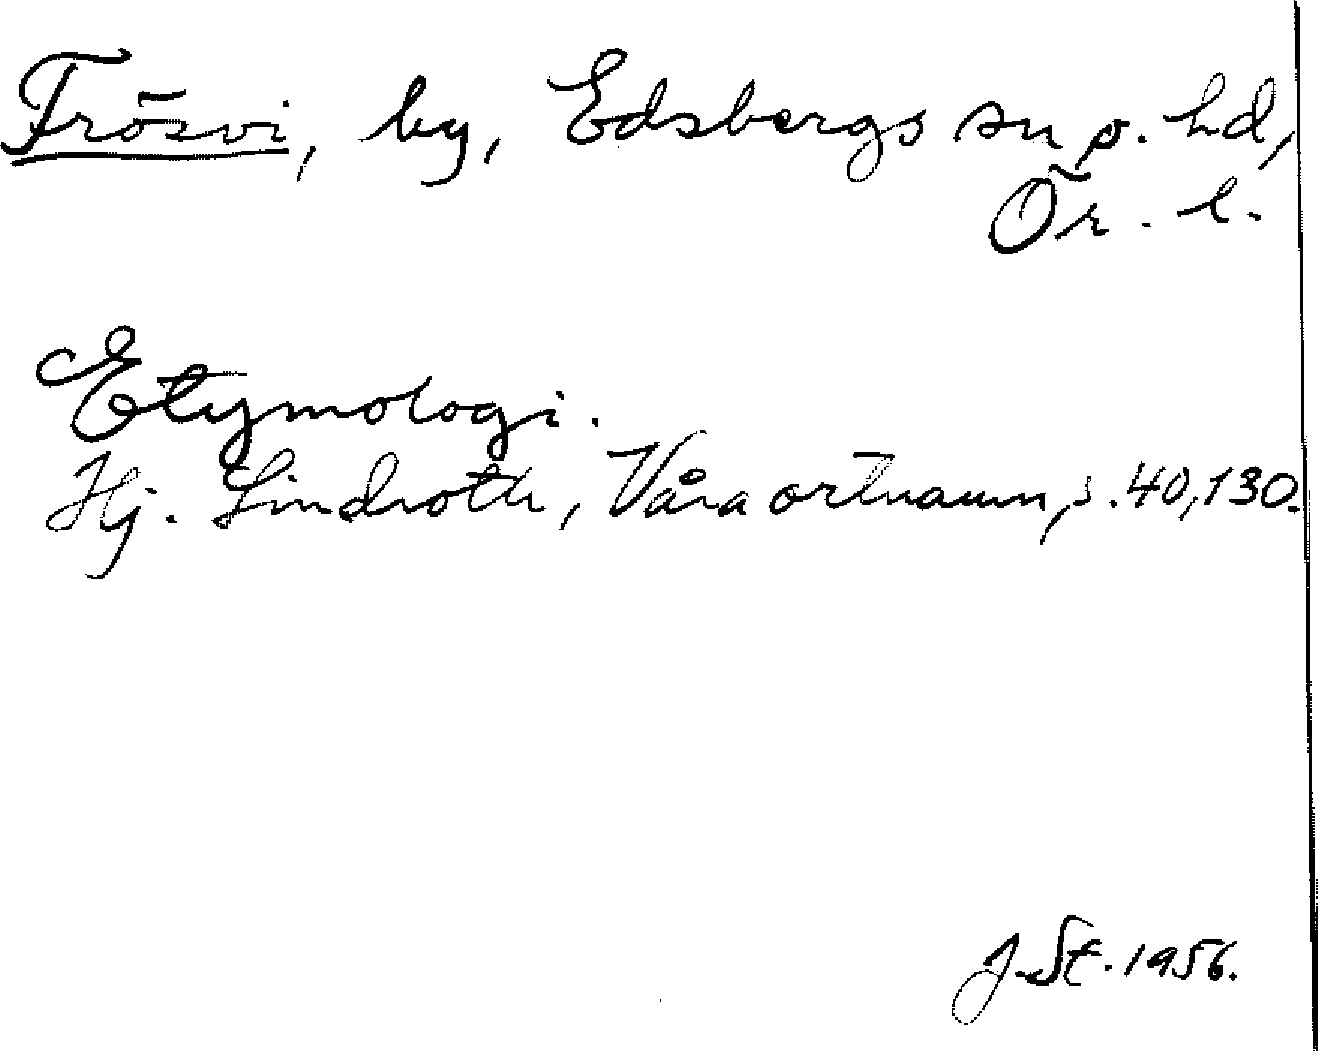 Frösvi, by, Edsbergs sn o. hd,
Ör. l.
Etymologi.
Hj. Lindroth, Våra ortnamn, s. 40, 130.
J. St. 1956.